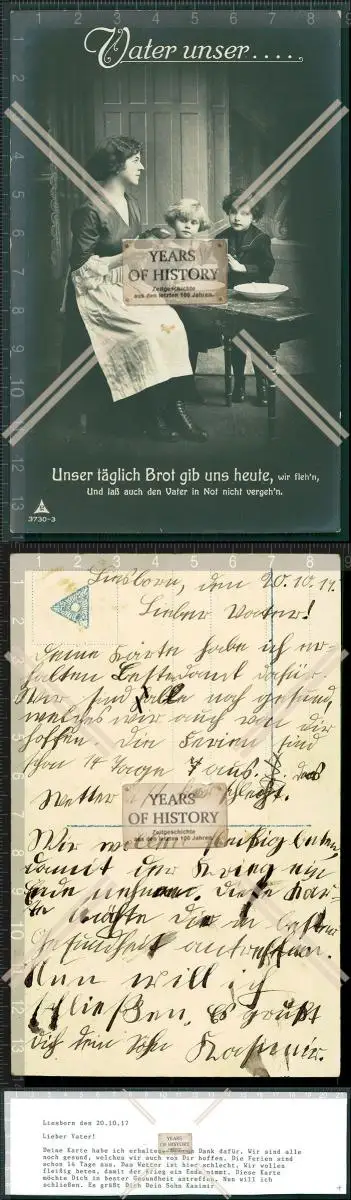 Vater unser....
YEARS
OF HISTORY
Zeitgeschichte
aus den letzten 100 Jahren
Unser täglich Brot gib uns heute, wir fleh'n,
Und laß auch den Vater in Not nicht vergeh'n.
3730-3
Liesborn, den 20.10.17.
Lieber Vater!
Deine Karte habe ich er-
halten Besten Dank dafür.
Wir sind alle noch gesund,
welches wir auch von dir
hoffen. Die Ferien sind
schon 14 Tage aus. Das
Wetter ist hier schlecht.
YEARS
OF HISTORY
Zeitgeschichte
aus den letzten 100 Jahren
Wir wollen fleißig beten,
damit der Krieg ein
Ende nehme. Diese Kar-
te möchte Dir in bester
Gesundheit antreffen.
Nun will ich
schließen. Es grüßt
dich dein Sohn Kasimir.
Liesborn den 20.10.17
Lieber Vater!
YEARS
OF HISTORY
Deine Karte habe ich erhalten Dank dafür. Wir sind alle
noch gesund, welches wir auch von Dir hoffen. Die Ferien sind
schon 14 Tage aus. Das Wetter ist hier schlecht. Wir wollen
fleißig beten, damit der Krieg ein Ende nimmt. Diese Karte
möchte Dich in bester Gesundheit antreffen. Nun will ich
schließen. Es grüßt Dich Dein Sohn Kasimir.